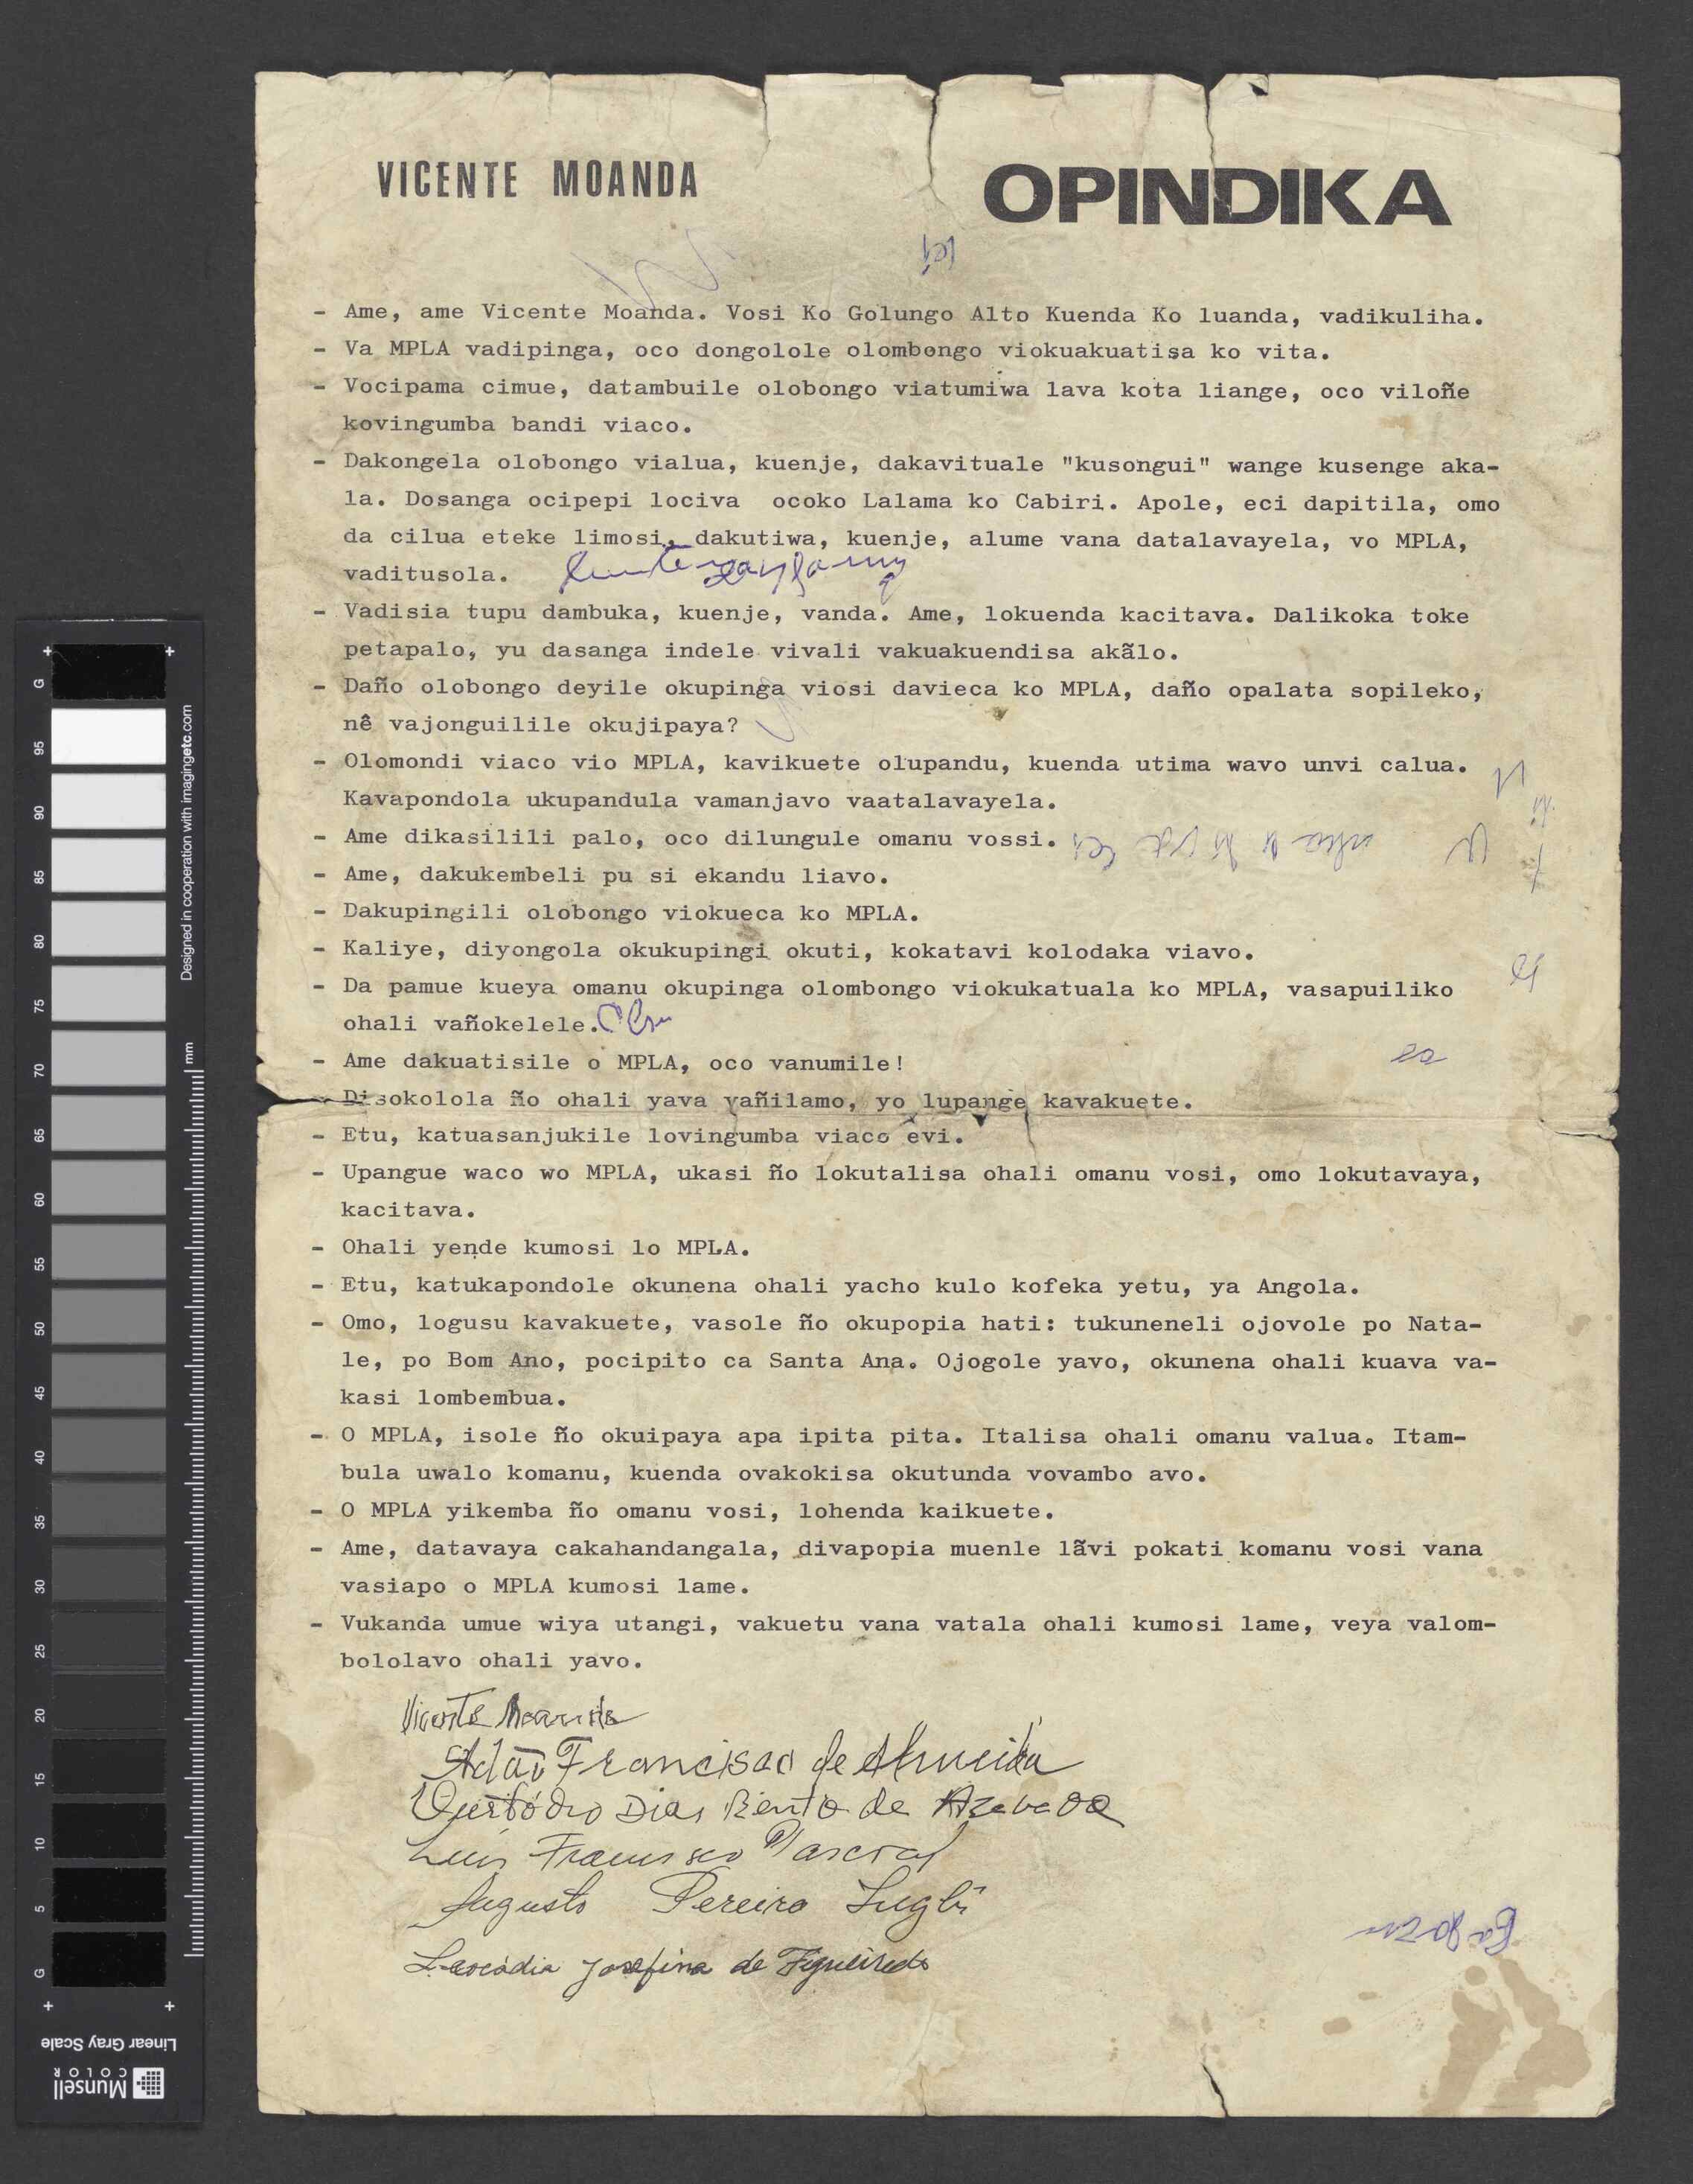 VICENTE MOANDA
OPINDIKA
- Ame, ame Vicente Moanda. Vosi Ko Golungo Alto Kuenda Ko luanda, vadikuliha.
- Va MPLA vadipinga, oco dongolole olombongo viokuakuatisa ko vita.
- Vocipama cimue, datambuile olobongo viatumiwa lava kota liange, oco viloñe
kovingumba bandi viaco.
- Dakongela olobongo vialua, kuenje, dakavituale "kusongui" wange kusenge aka-
la. Dosanga ocipepi lociva ocoko Lalama ko Cabiri. Apole, eci dapitila, omo
da cilua eteke limosi, dakutiwa, kuenje, alume vana datalavayela, vo MPLA,
vaditusola.
- Vadisia tupu dambuka, kuenje, vanda. Ame, lokuenda kacitava. Dalikoka toke
petapalo, yu dasanga indele vivali vakuakuendisa akãlo.
- Daño olobongo deyile okupinga viosi davieca ko MPLA, daño opalata sopileko,
nê vajonguilile okujipaya?
- Olomondi viaco vio MPLA, kavikuete olupandu, kuenda utima wavo unvi calua.
Kavapondola ukupandula vamanjavo vaatalavayela.
- Ame dikasilili palo, oco dilungule omanu vossi.
- Ame, dakukembeli pu si ekandu liavo.
- Dakupingili olobongo viokueca ko MPLA.
- Kaliye, diyongola okukupingi okuti, kokatavi kolodaka viavo.
- Da pamue kueya omanu okupinga olombongo viokukatuala ko MPLA, vasapuiliko
ohali vañokelele.
- Ame dakuatisile o MPLA, oco vanumile!
- Disokolola ño ohali yava vañilamo, yo lupange kavakuete.
- Etu, katuasanjukile lovingumba viaco evi.
- Upangue waco wo MPLA, ukasi ño lokutalisa ohali omanu vosi, omo lokutavaya,
kacitava.
- Ohali yende kumosi lo MPLA.
- Etu, katukapondole okunena ohali yacho kulo kofeka yetu, ya Angola.
- Omo, logusu kavakuete, vasole ño okupopia hati: tukuneneli ojovole po Nata-
le, po Bom Ano, pocipito ca Santa Ana. Ojogole yavo, okunena ohali kuava va-
kasi lombembua.
- O MPLA, isole ño okuipaya apa ipita pita. Italisa ohali omanu valua. Itam-
bula uwalo komanu, kuenda ovakokisa okutunda vovambo avo.
- O MPLA yikemba ño omanu vosi, lohenda kaikuete.
- Ame, datavaya cakahandangala, divapopia muenle lãvi pokati komanu vosi vana
vasiapo o MPLA kumosi lame.
- Vukanda umue wiya utangi, vakuetu vana vatala ohali kumosi lame, veya valom-
bololavo ohali yavo.
Vicente Moanda
Adão Francisco de Almeida
Custódio Dias Bento de Azevedo
Luís Francisco Pascoal
Augusto Pereira
Leocádia Josefina de Figueiredo
Designed in cooperation with imagingetc.com
mm
G 95 90 85 80 75 70 65 60 55 50 45 40 35 30 25 20 15 10 5 G
Linear Gray Scale
Munsell
COLOR